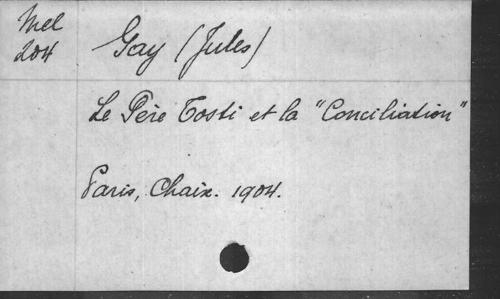 Mel
204
Gay (Jules)
Le Père Tosti et la "Conciliation"
Paris, Chaix. 1904.